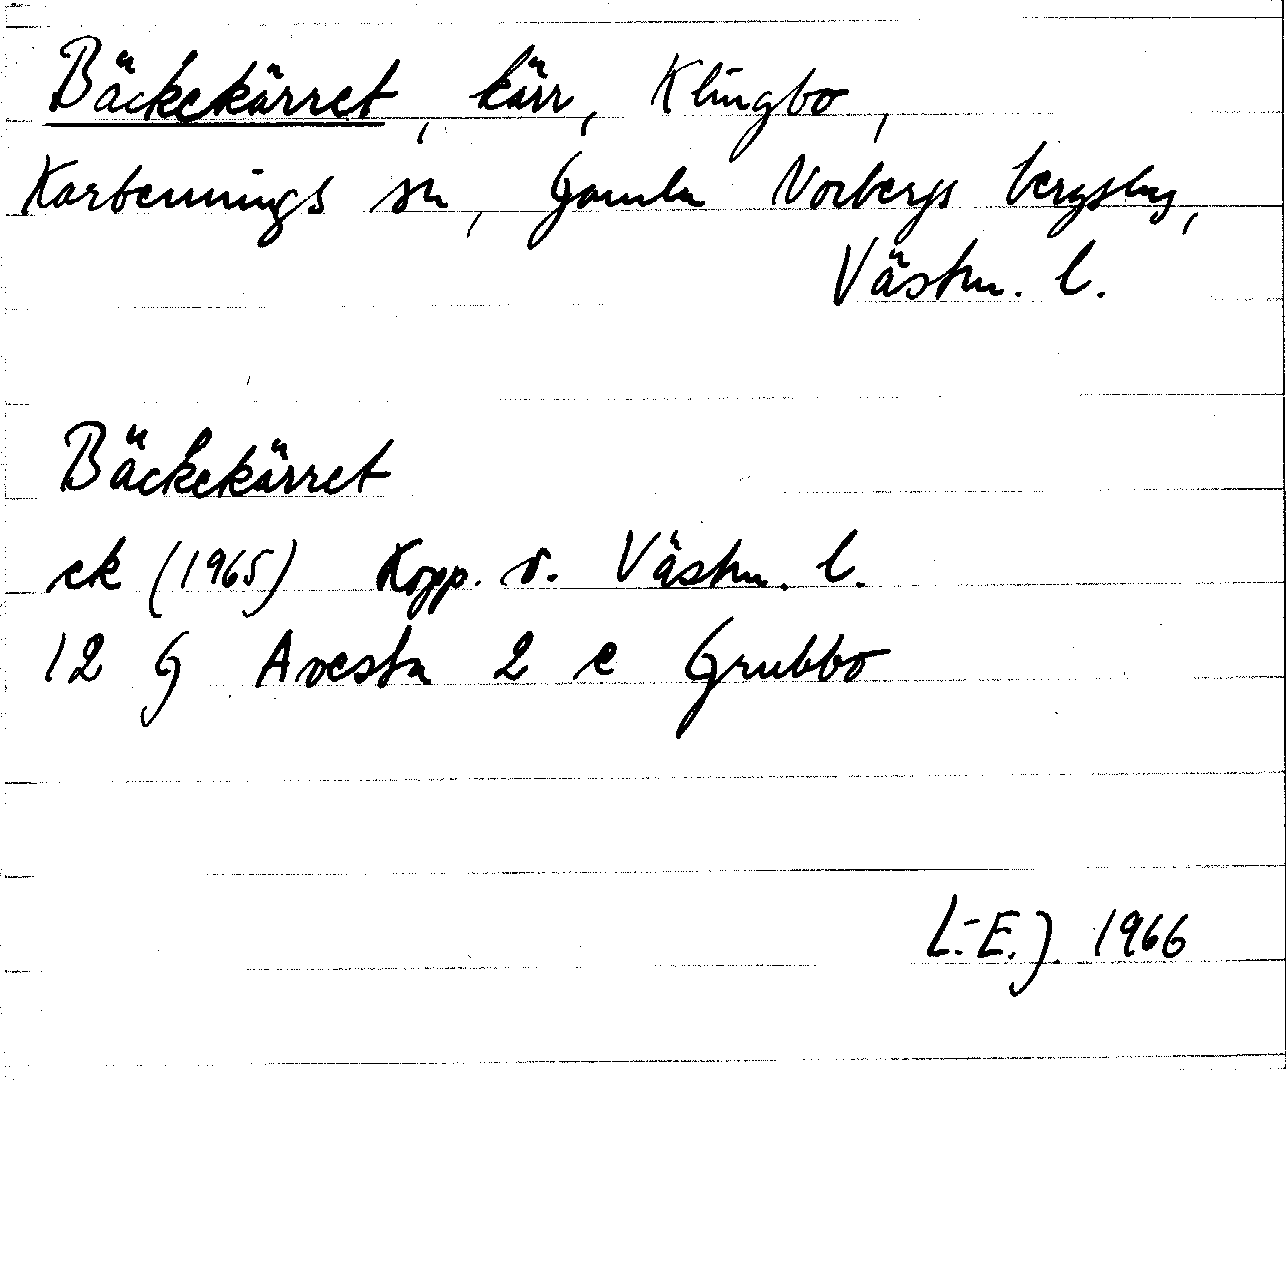 Bäckekärret, kärr, Klingbo,
Karbennings sn, Gamla Norbergs bergslag,
Västm. l.
Bäckekärret
ek (1965) Kopp. o. Västm. l.
12 G Avesta 2 e Grubbo
L.-E.J. 1966